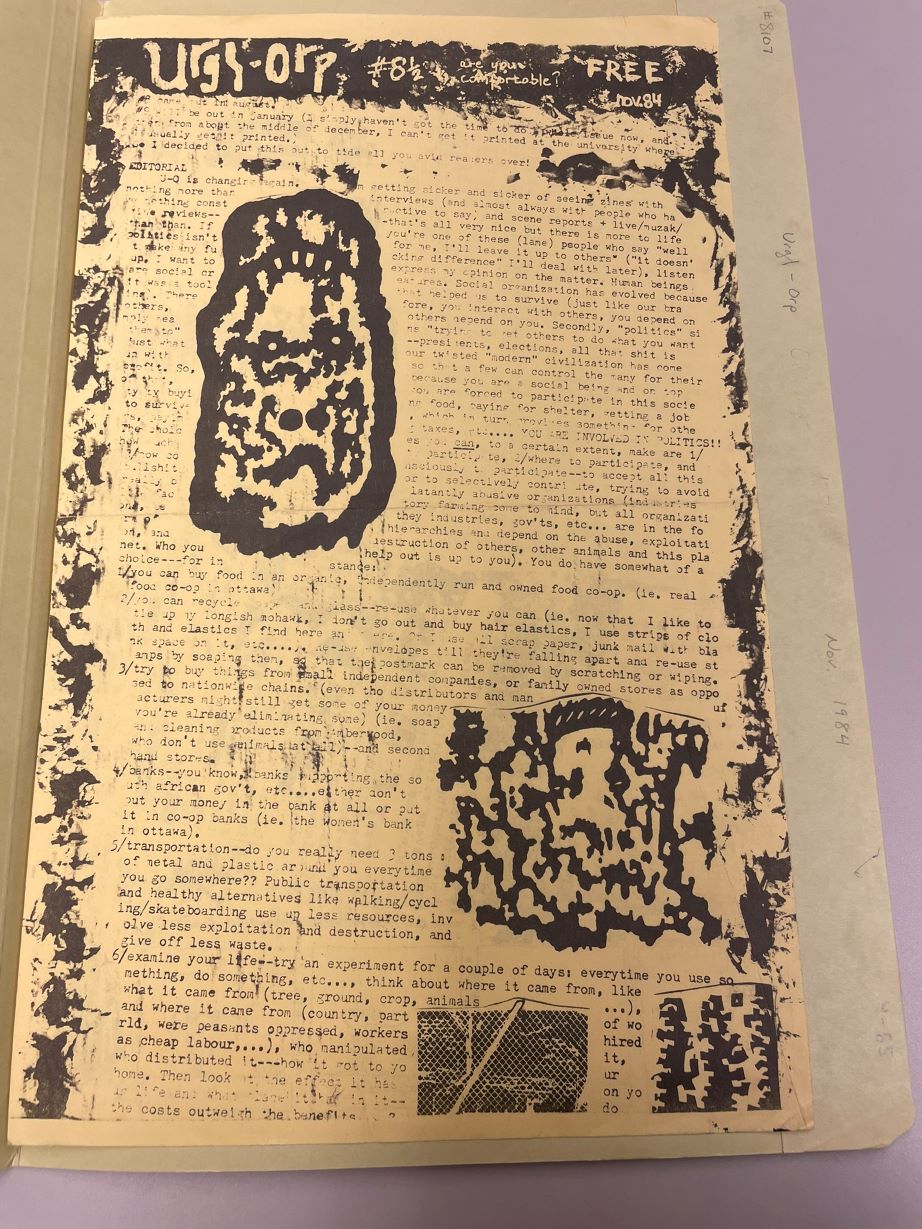 Urgl-Orp #8½ are you comfortable? FREE
nov.84
out in august.
be out in january (I simply haven't got the time to do issue now, and
from about the middle of december, I can't get it printed at the university where
usually get it printed.
I decided to put this out to tide all you avid readers over!
EDITORIAL
U-O is changing again. getting sicker and sicker of seeing zines with
nothing more than interviews (and almost always with people who ha
nothing const ctive to say, and scene reports + live/muzak/
reviews-- that's all very nice but there is more to life
than that. If you're one of these (lame) people who say "well
politics isn't for me, I'll leave it up to others" ("it doesn'
t make any fu cking difference" I'll deal with later), listen
up. I want to express my opinion on the matter. Human beings
are social cr eatures. Social organization has evolved because
it was a tool that helped us to survive (just like our bra
ins). There fore, you interact with others, you depend on
others, others depend on you. Secondly, "politics" si
mply mea ns "trying to get others to do what you want
them to" --presidents, elections, all that shit is
just what our twisted "modern" civilization has come
up with so that a few can control the many for their
profit. So, because you are a social being and on top
you are forced to participate in this socie
ty by buyi ng food, paying for shelter, getting a job
to survive, which in turn provides something for othe
taxes, etc.... YOU ARE INVOLVED IN POLITICS!!
The choic es you can, to a certain extent, make are 1/
how much participate, 2/where to participate, and
3/how co nsciously to participate--to accept all this
bullshit or to selectively contribute, trying to avoid
really b latantly abusive organizations (industries
fac tory farming come to mind, but all organizati
ons, be they industries, gov'ts, etc... are in the fo
hierarchies and depend on the abuse, exploitati
on, and destruction of others, other animals and this pla
net. Who you help out is up to you). You do have somewhat of a
choice---for in stance:
1/you can buy food in an organic, independently run and owned food co-op. (ie. real
food co-op in ottawa)
2/you can recycle and glass--re-use whatever you can (ie. now that I like to
tie up my longish mohawk, I don't go out and buy hair elastics, I use strips of clo
th and elastics I find here and there. Or I use all scrap paper, junk mail with bla
nk space on it, etc....., Re-use envelopes till they're falling apart and re-use st
amps by soaping them, so that the postmark can be removed by scratching or wiping.
3/try to buy things from small independent companies, or family owned stores as oppo
sed to nationwide chains. (even tho distributors and man uf
acturers might still get some of your money
you're already eliminating some) (ie. soap
and cleaning products from amberwood,
who don't use animals at all)--and second
hand stores.
4/banks--you know, banks supporting the so
uth african gov't, etc....either don't
put your money in the bank at all or put
it in co-op banks (ie. the women's bank
in ottawa).
5/transportation--do you really need 3 tons
of metal and plastic around you everytime
you go somewhere?? Public transportation
and healthy alternatives like walking/cycl
ing/skateboarding use up less resources, inv
olve less exploitation and destruction, and
give off less waste.
6/examine your life--try an experiment for a couple of days: everytime you use so
mething, do something, etc..., think about where it came from, like
what it came from (tree, ground, crop, animals ...),
and where it came from (country, part of wo
rld, were peasants oppressed, workers hired
as cheap labour,...), who manipulated it,
who distributed it---how it got to yo ur
home. Then look at the effect it has on yo
ur life and what place it has in it-- do
the costs outweigh the benefits ?
#8107
Urgl-Orp
Nov. 1984